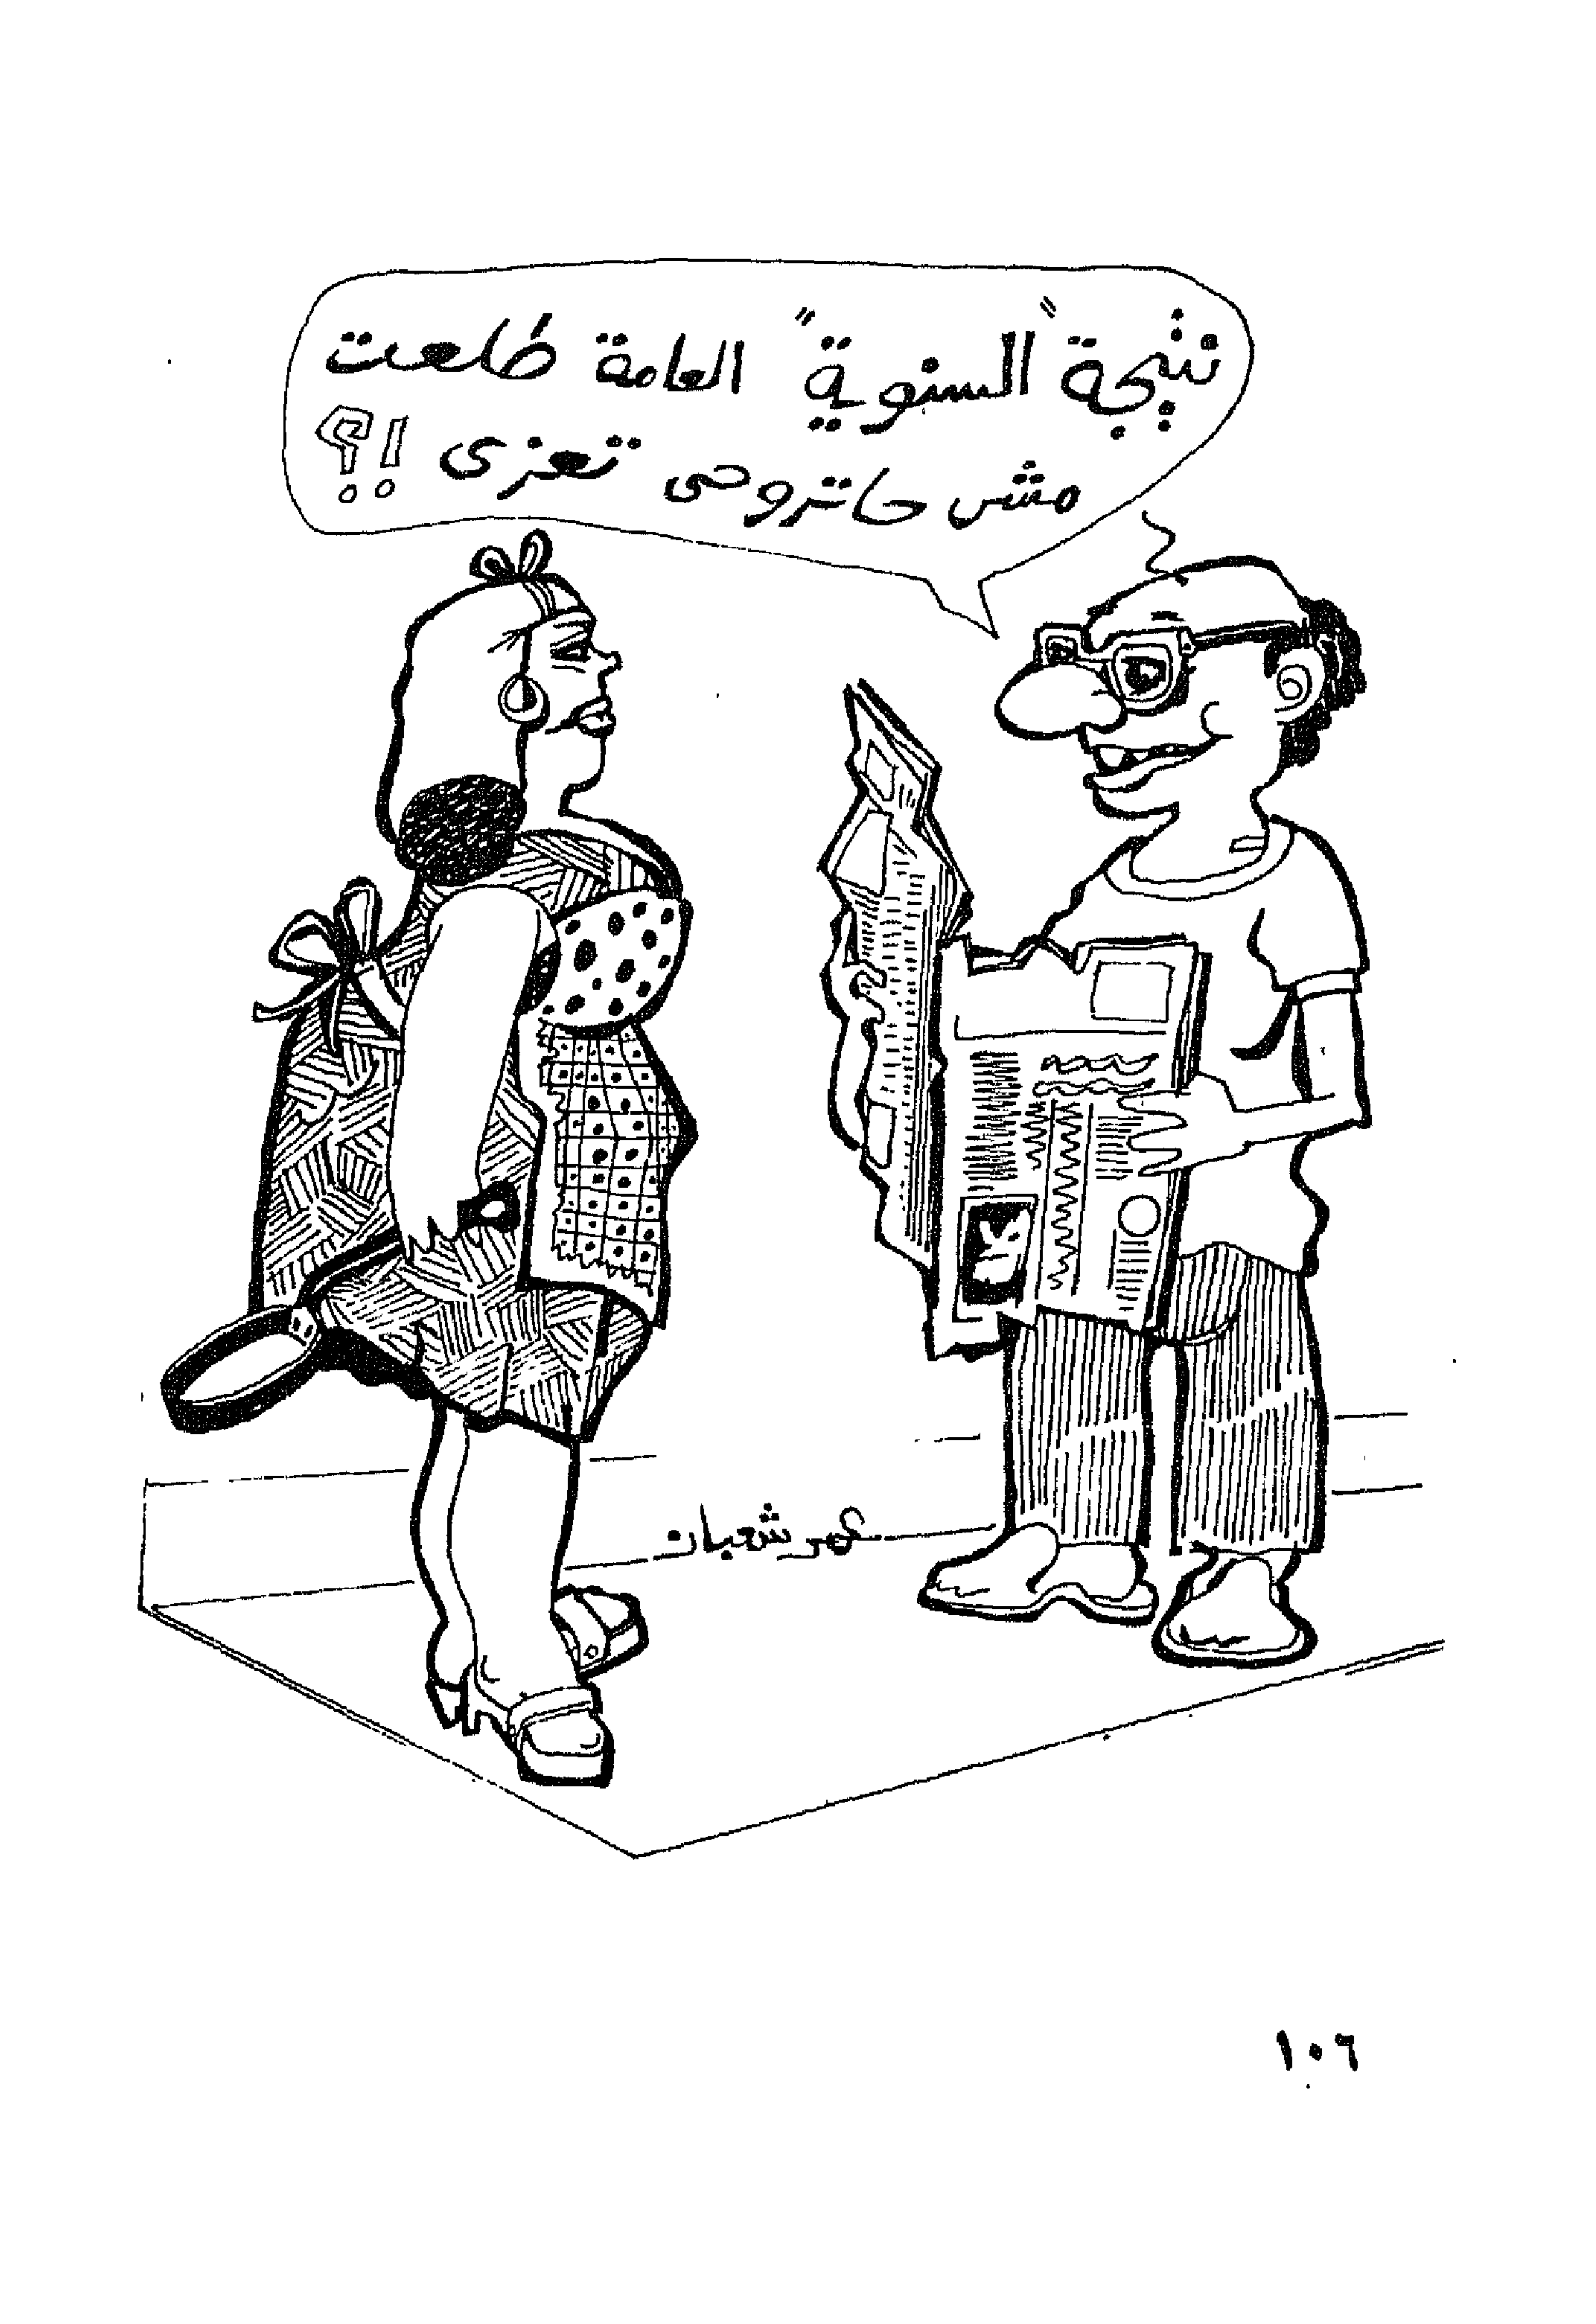 نتيجة "السنوية" العامة طلعت
مش حاتروحى تعزى !؟
عمر شعبان
١٠٦